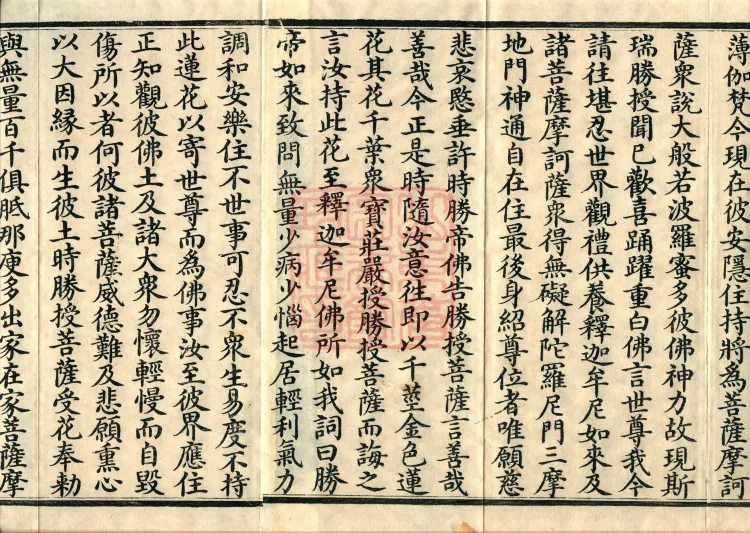 薄伽梵今現在彼安隱住持將為菩薩摩訶
薩衆說大般若波羅蜜多彼佛神力故現斯
瑞勝授聞已歡喜踊躍重白佛言世尊我今
請往堪忍世界觀禮供養釋迦牟尼如來及
諸菩薩摩訶薩衆得無礙解陀羅尼門三摩
地門神通自在住最後身紹尊位者唯願慈
悲哀愍垂許時勝帝佛告勝授菩薩言善哉
善哉今正是時隨汝意往即以千莖金色蓮
花其花千葉衆寶莊嚴授勝授菩薩而誨之
言汝持此花至釋迦牟尼佛所如我詞曰勝
帝如來致問無量少病少惱起居輕利氣力
調和安樂住不世事可忍不衆生易度不持
此蓮花以寄世尊而為佛事汝至彼界應住
正知觀彼佛土及諸大衆勿懷輕慢而自毀
傷所以者何彼諸菩薩威德難及悲願熏心
以大因緣而生彼土時勝授菩薩受花奉勅
與無量百千俱胝那庾多出家在家菩薩摩